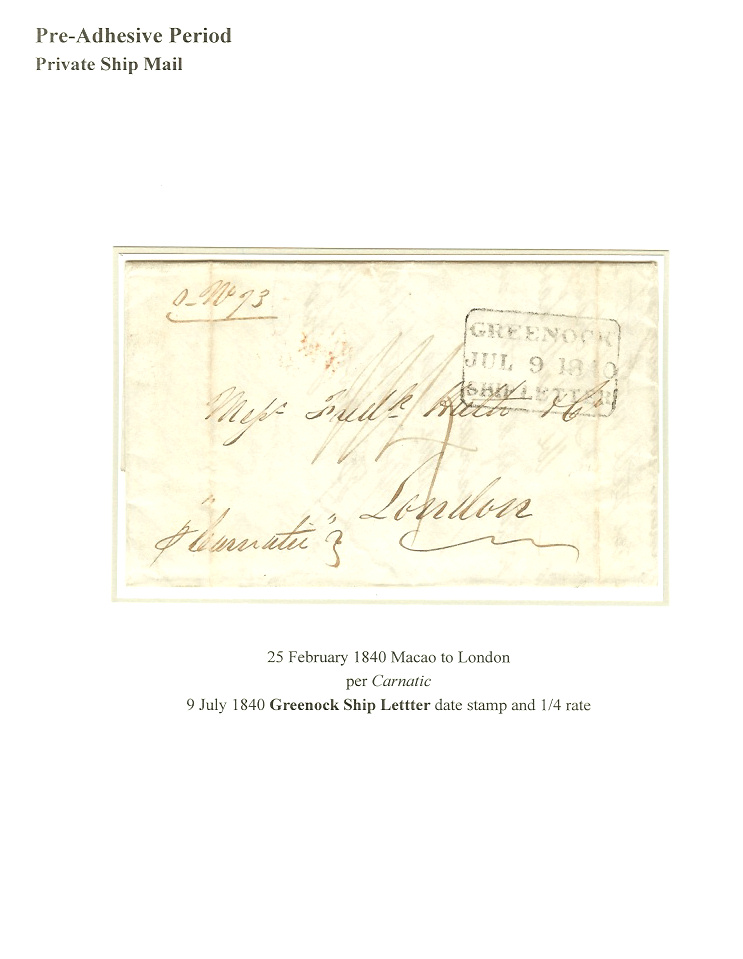 Pre-Adhesive Period
Private Ship Mail
GREENOCK
JUL 9 1840
SHIP LETTER
Messrs Fredk Huth & Co
London
p "Carnatic"
25 February 1840 Macao to London
per Carnatic
9 July 1840 Greenock Ship Lettter date stamp and 1/4 rate